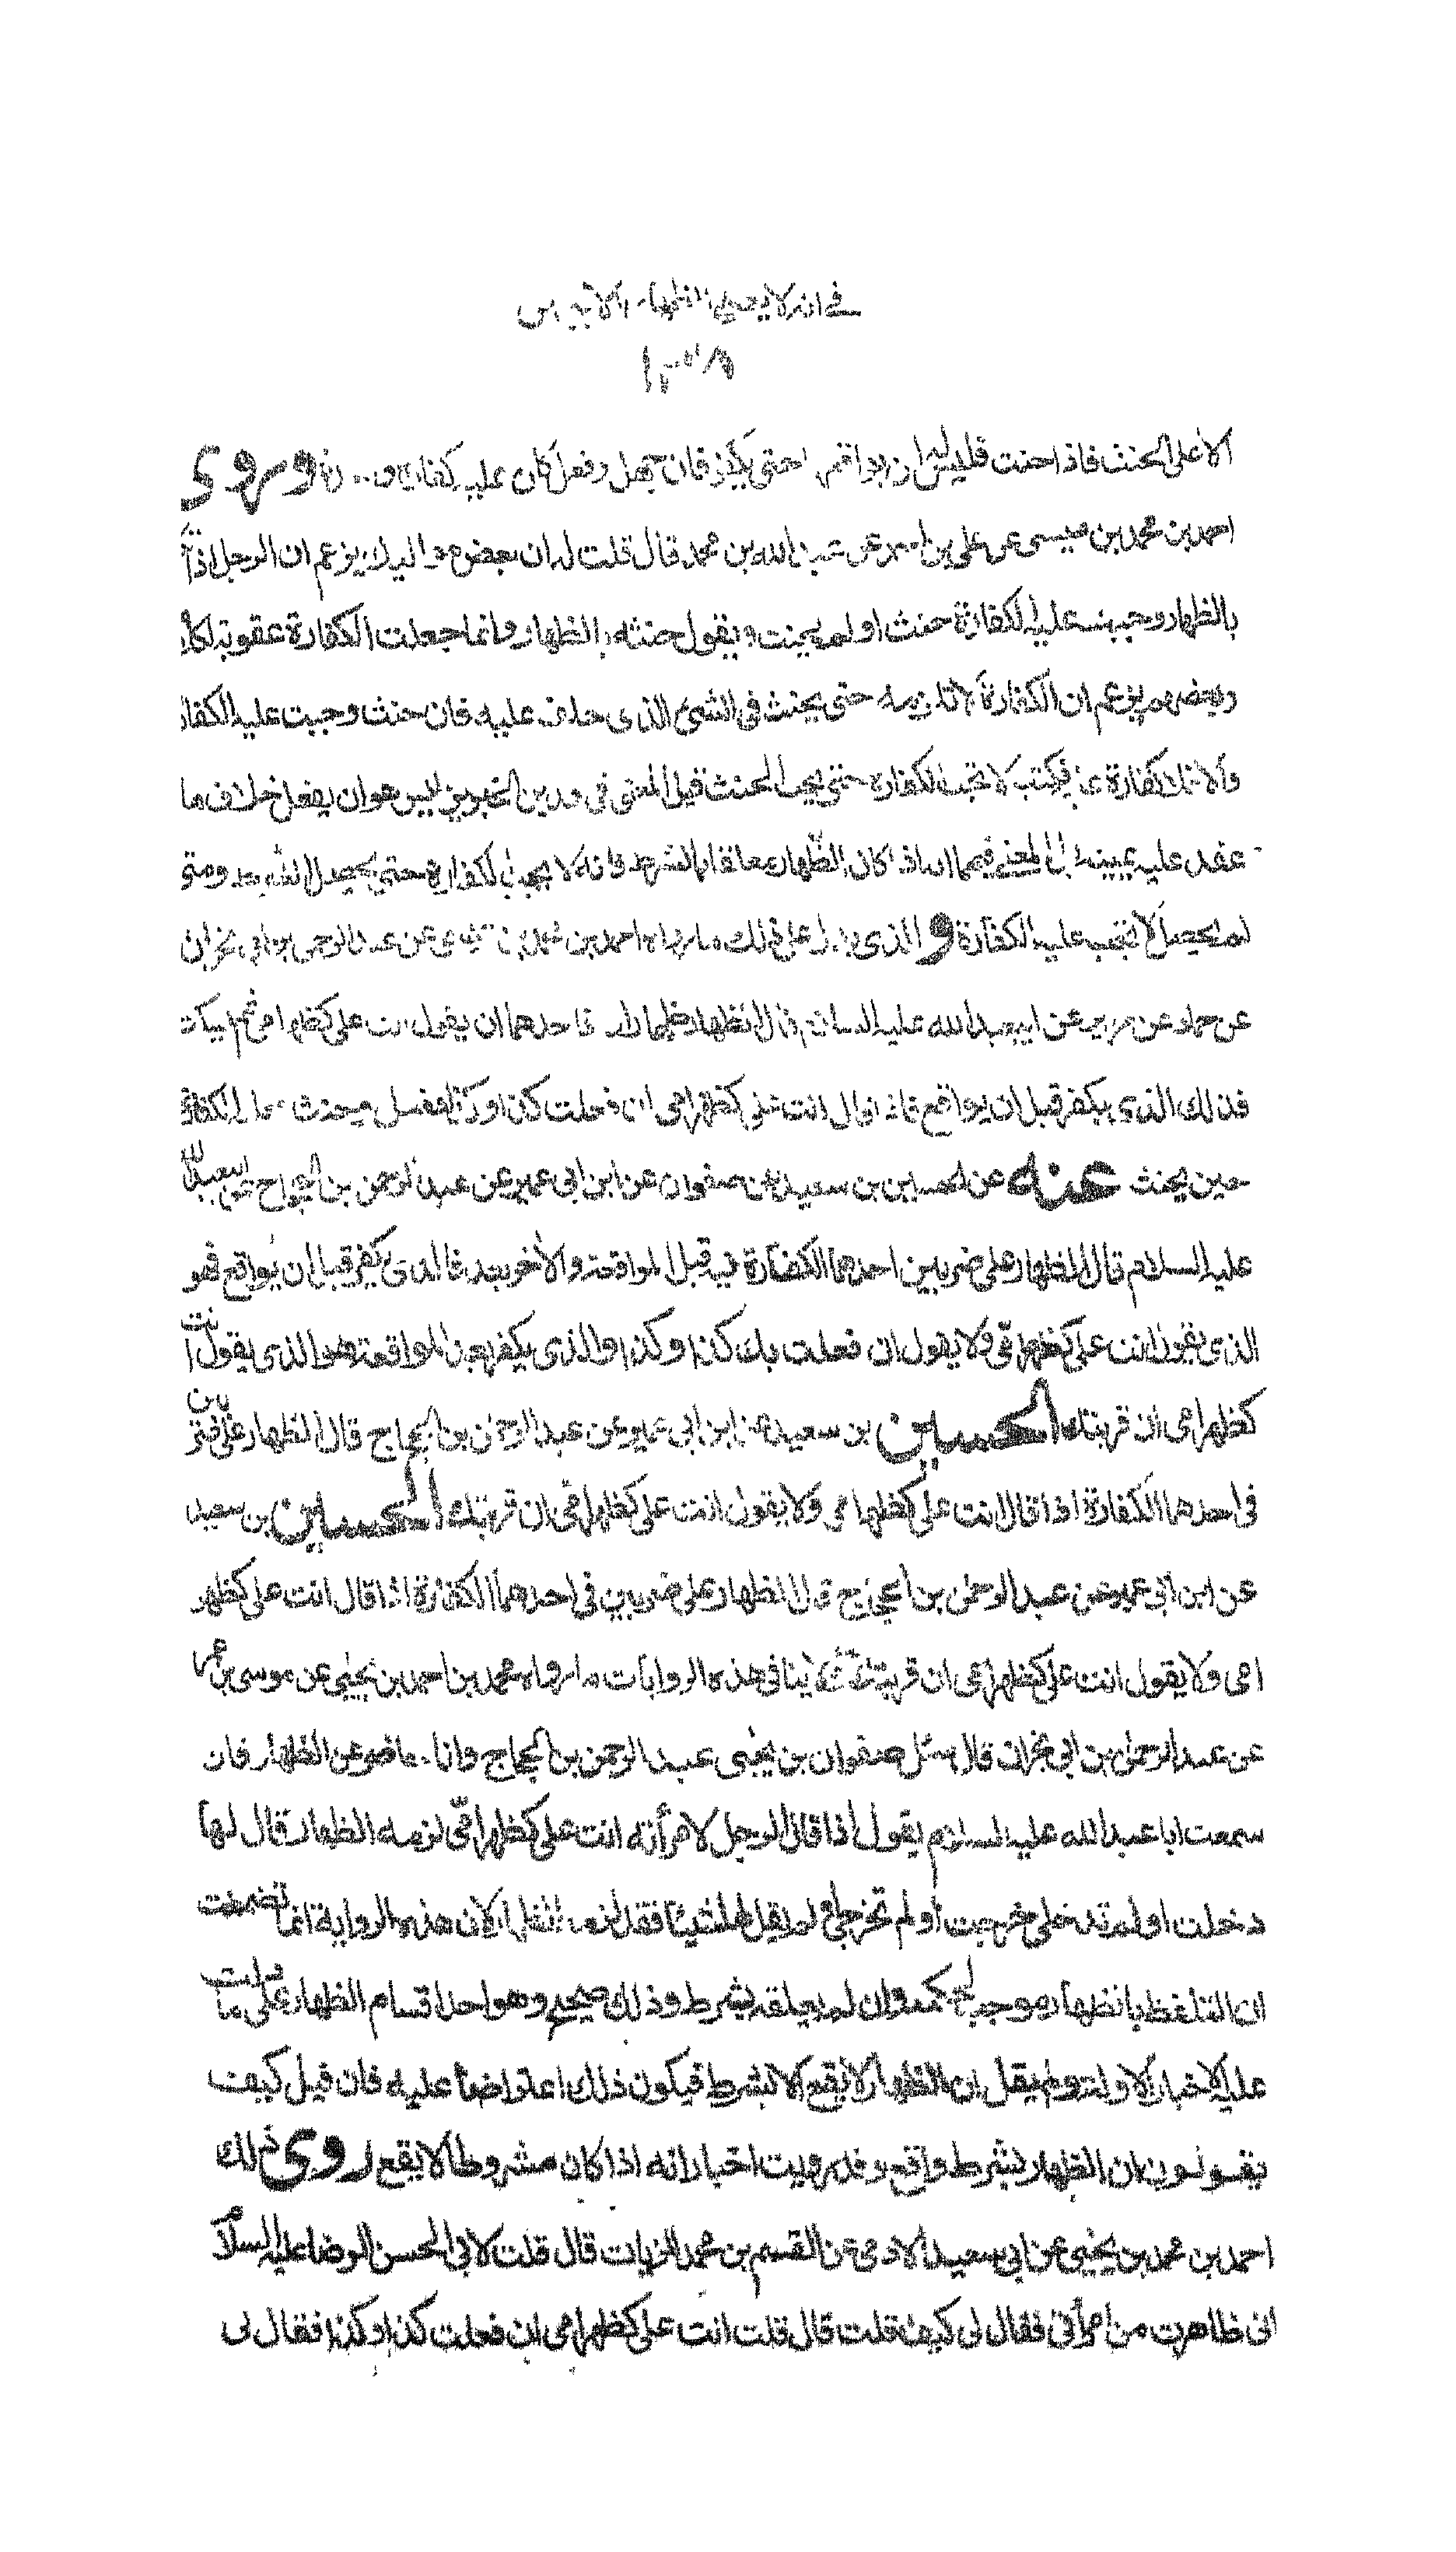 في انه لا يصح الظهار الا بيمين
الا على الحنث فاذا حنث فليس له ان يواقعها حتى يكفر فان جهل وفعل كان عليه كفارة وروى
احمد بن محمد بن عيسى عن علي بن احمد عن عبد الله بن محمد قال قلت له ان بعض مواليك يزعم ان الرجل اذا
بالظهار وجبت عليه الكفارة حنث او لم يحنث ويقول حنثه بالظهار وانما جعلت الكفارة عقوبة لكلا
وبعضهم يزعم ان الكفارة لا تلزمه حتى يحنث في الشئ الذى حلف عليه فان حنث وجبت عليه الكفار
والا فلا كفارة عليه فكتب لا تجب الكفارة حتى يجب الحنث قيل المعنى في هذين الخبرين ليس هو ان يفعل خلاف ما
عقد عليه يمينه بل المعنى فيهما انه اذا كان الظهار معلقا بالشرط فانه لا يجب الكفارة حتى يحصل الشرط ومتى
لم يحصل لا تجب عليه الكفارة والذى يدل على ذلك ما رواه احمد بن محمد بن عيسى عن عبد الرحمن بن ابى نجران
عن حماد عن حريز عن ابيعبد الله عليه السلام قال الظهار ظهاران فاحدهما ان يقول انت على كظهر امى ثم يسكت
فذلك الذى يكفر قبل ان يواقع فاذا قال انت على كظهر امى ان فعلت كذا وكذا ففعل وحنث فعليه الكفارة
حين يحنث عنه عن الحسين بن سعيد عن صفوان عن ابن ابى عمير عن عبد الرحمن بن الحجاج عن ابيعبد الله
عليه السلام قال الظهار على ضربين احدهما الكفارة فيه قبل المواقعة والاخر بعده فالذى يكفر قبل ان يواقع فهو
الذى يقول انت على كظهر امى ولا يقول ان فعلت بك كذا وكذا والذى يكفر بعد المواقعة هو الذى يقول انت
كظهر امى ان قربتك الحسين بن سعيد عن ابن ابى عمير عن عبد الرحمن بن الحجاج قال الظهار على ضربين
في احدهما الكفارة اذا قال انت على كظهر امى ولا يقول انت على كظهر امى ان قربتك الحسين بن سعيد
عن ابن ابى عمير عن عبد الرحمن بن الحجاج قال الظهار على ضربين في احدهما الكفارة اذا قال انت على كظهر
امى ولا يقول انت على كظهر امى ان قربتك ينافى هذه الروايات ما رواه محمد بن احمد بن يحيى عن موسى بن عمر
عن عبد الرحمن بن ابى نجران قال سئل صفوان بن يحيى عبد الرحمن بن الحجاج وانا حاضر عن الظهار قال
سمعت ابا عبد الله عليه السلام يقول اذا قال الرجل لامرأته انت على كظهر امى لزمه الظهار قال لها
دخلت او لم تدخلى خرجت او لم تخرجى او لم يقل لها شيئا فقد لزمه الظهار لان هذه الرواية انما تضمنت
ان التلفظ بالظهار موجب لحكمه وان لم يعلقه بشرط وذلك صحيح وهو احد اقسام الظهار على ما دلت
عليه الاخبار الاولة ولم يقل ان الظهار لا يقع الا بشرط فيكون ذلك اعتراضا عليه فان قيل كيف
يقولون ان الظهار بشرط واقع وقد رويت اخبار انه اذا كان مشروطا لا يقع روى ذلك
احمد بن محمد بن يحيى عن ابى سعيد الادمى عن القسم بن محمد الزيات قال قلت لابى الحسن الرضا عليه السلام
انى ظاهرت من امرأتى فقال لى كيف قلت قال قلت انت على كظهر امى ان فعلت كذا وكذا فقال لى